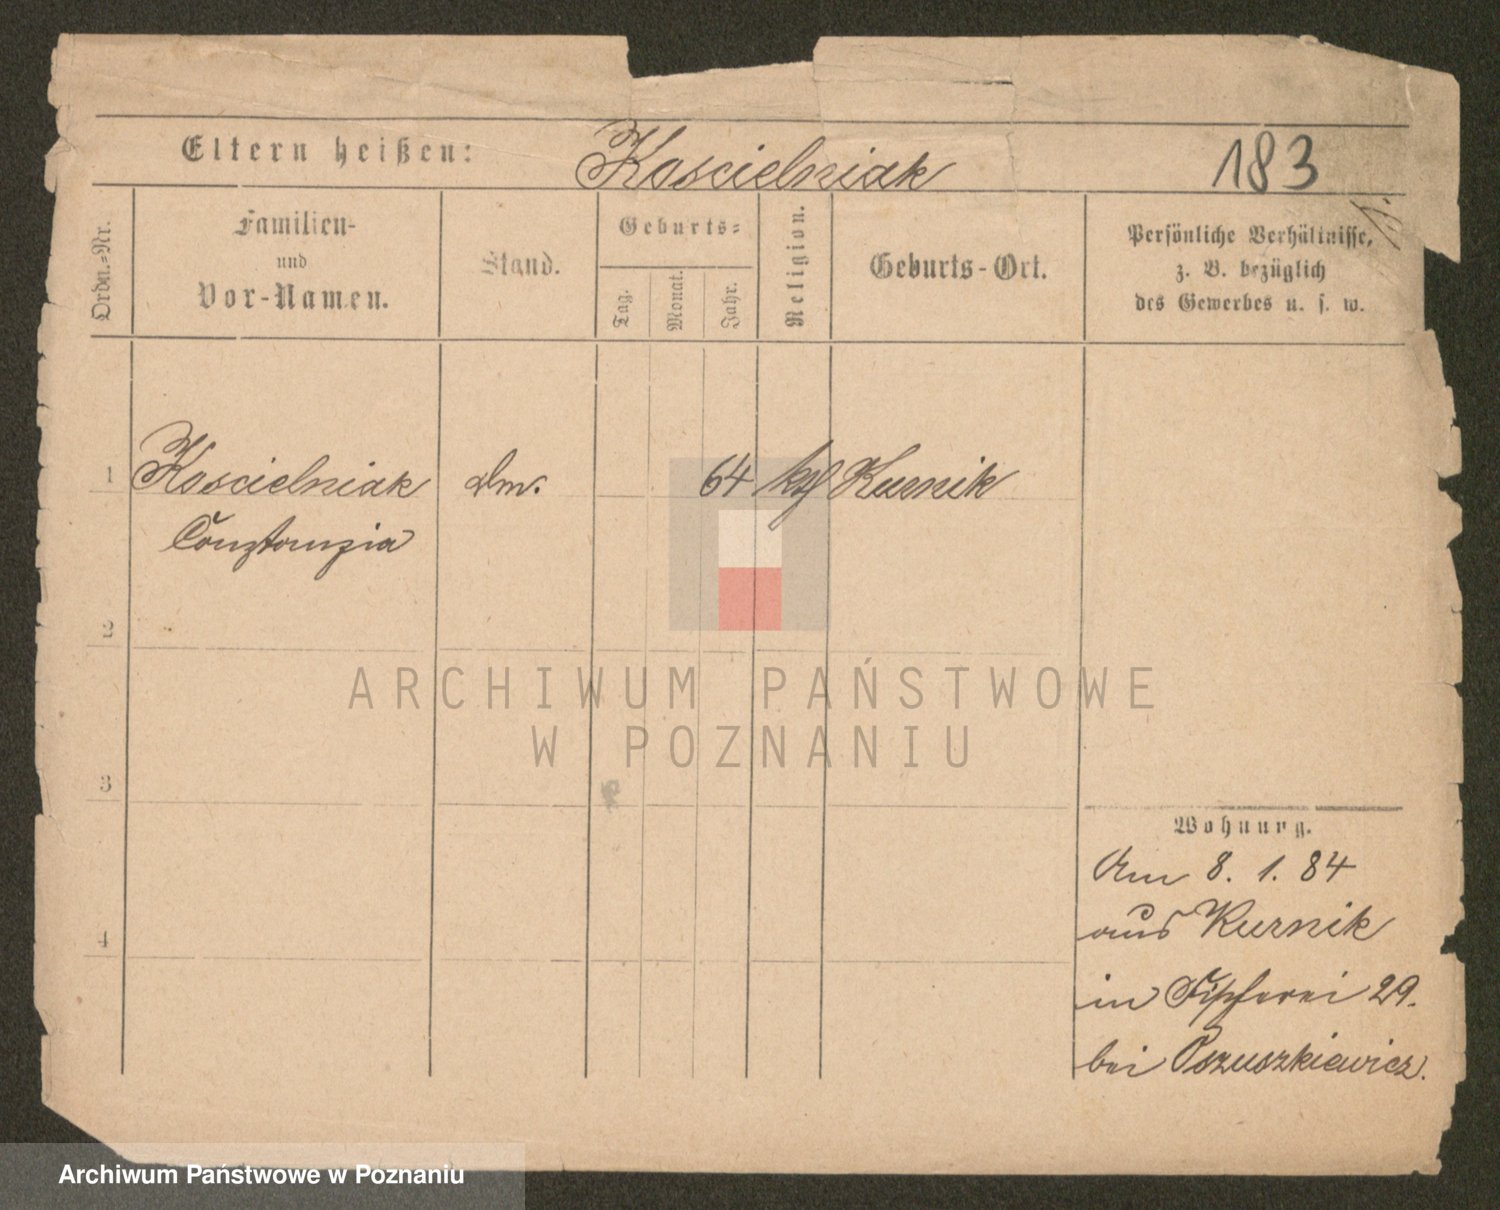 Eltern heißen: Koscielniak 183
Ordn.-Nr.
Familien-
und
Vor-Namen.
Stand.
Geburts-
Tag.
Monat.
Jahr.
Religion.
Geburts-Ort.
Persönliche Verhältnisse,
z. B. bezüglich
des Gewerbes u. s. w.
1 Koscielniak Dm. 64 kth Kurnik
Constanzia
2
3
4
Wohnung.
Am 8. 1. 84
aus Kurnik
in 29.
bei
ARCHIWUM PAŃSTWOWE
W POZNANIU
Archiwum Państwowe w Poznaniu